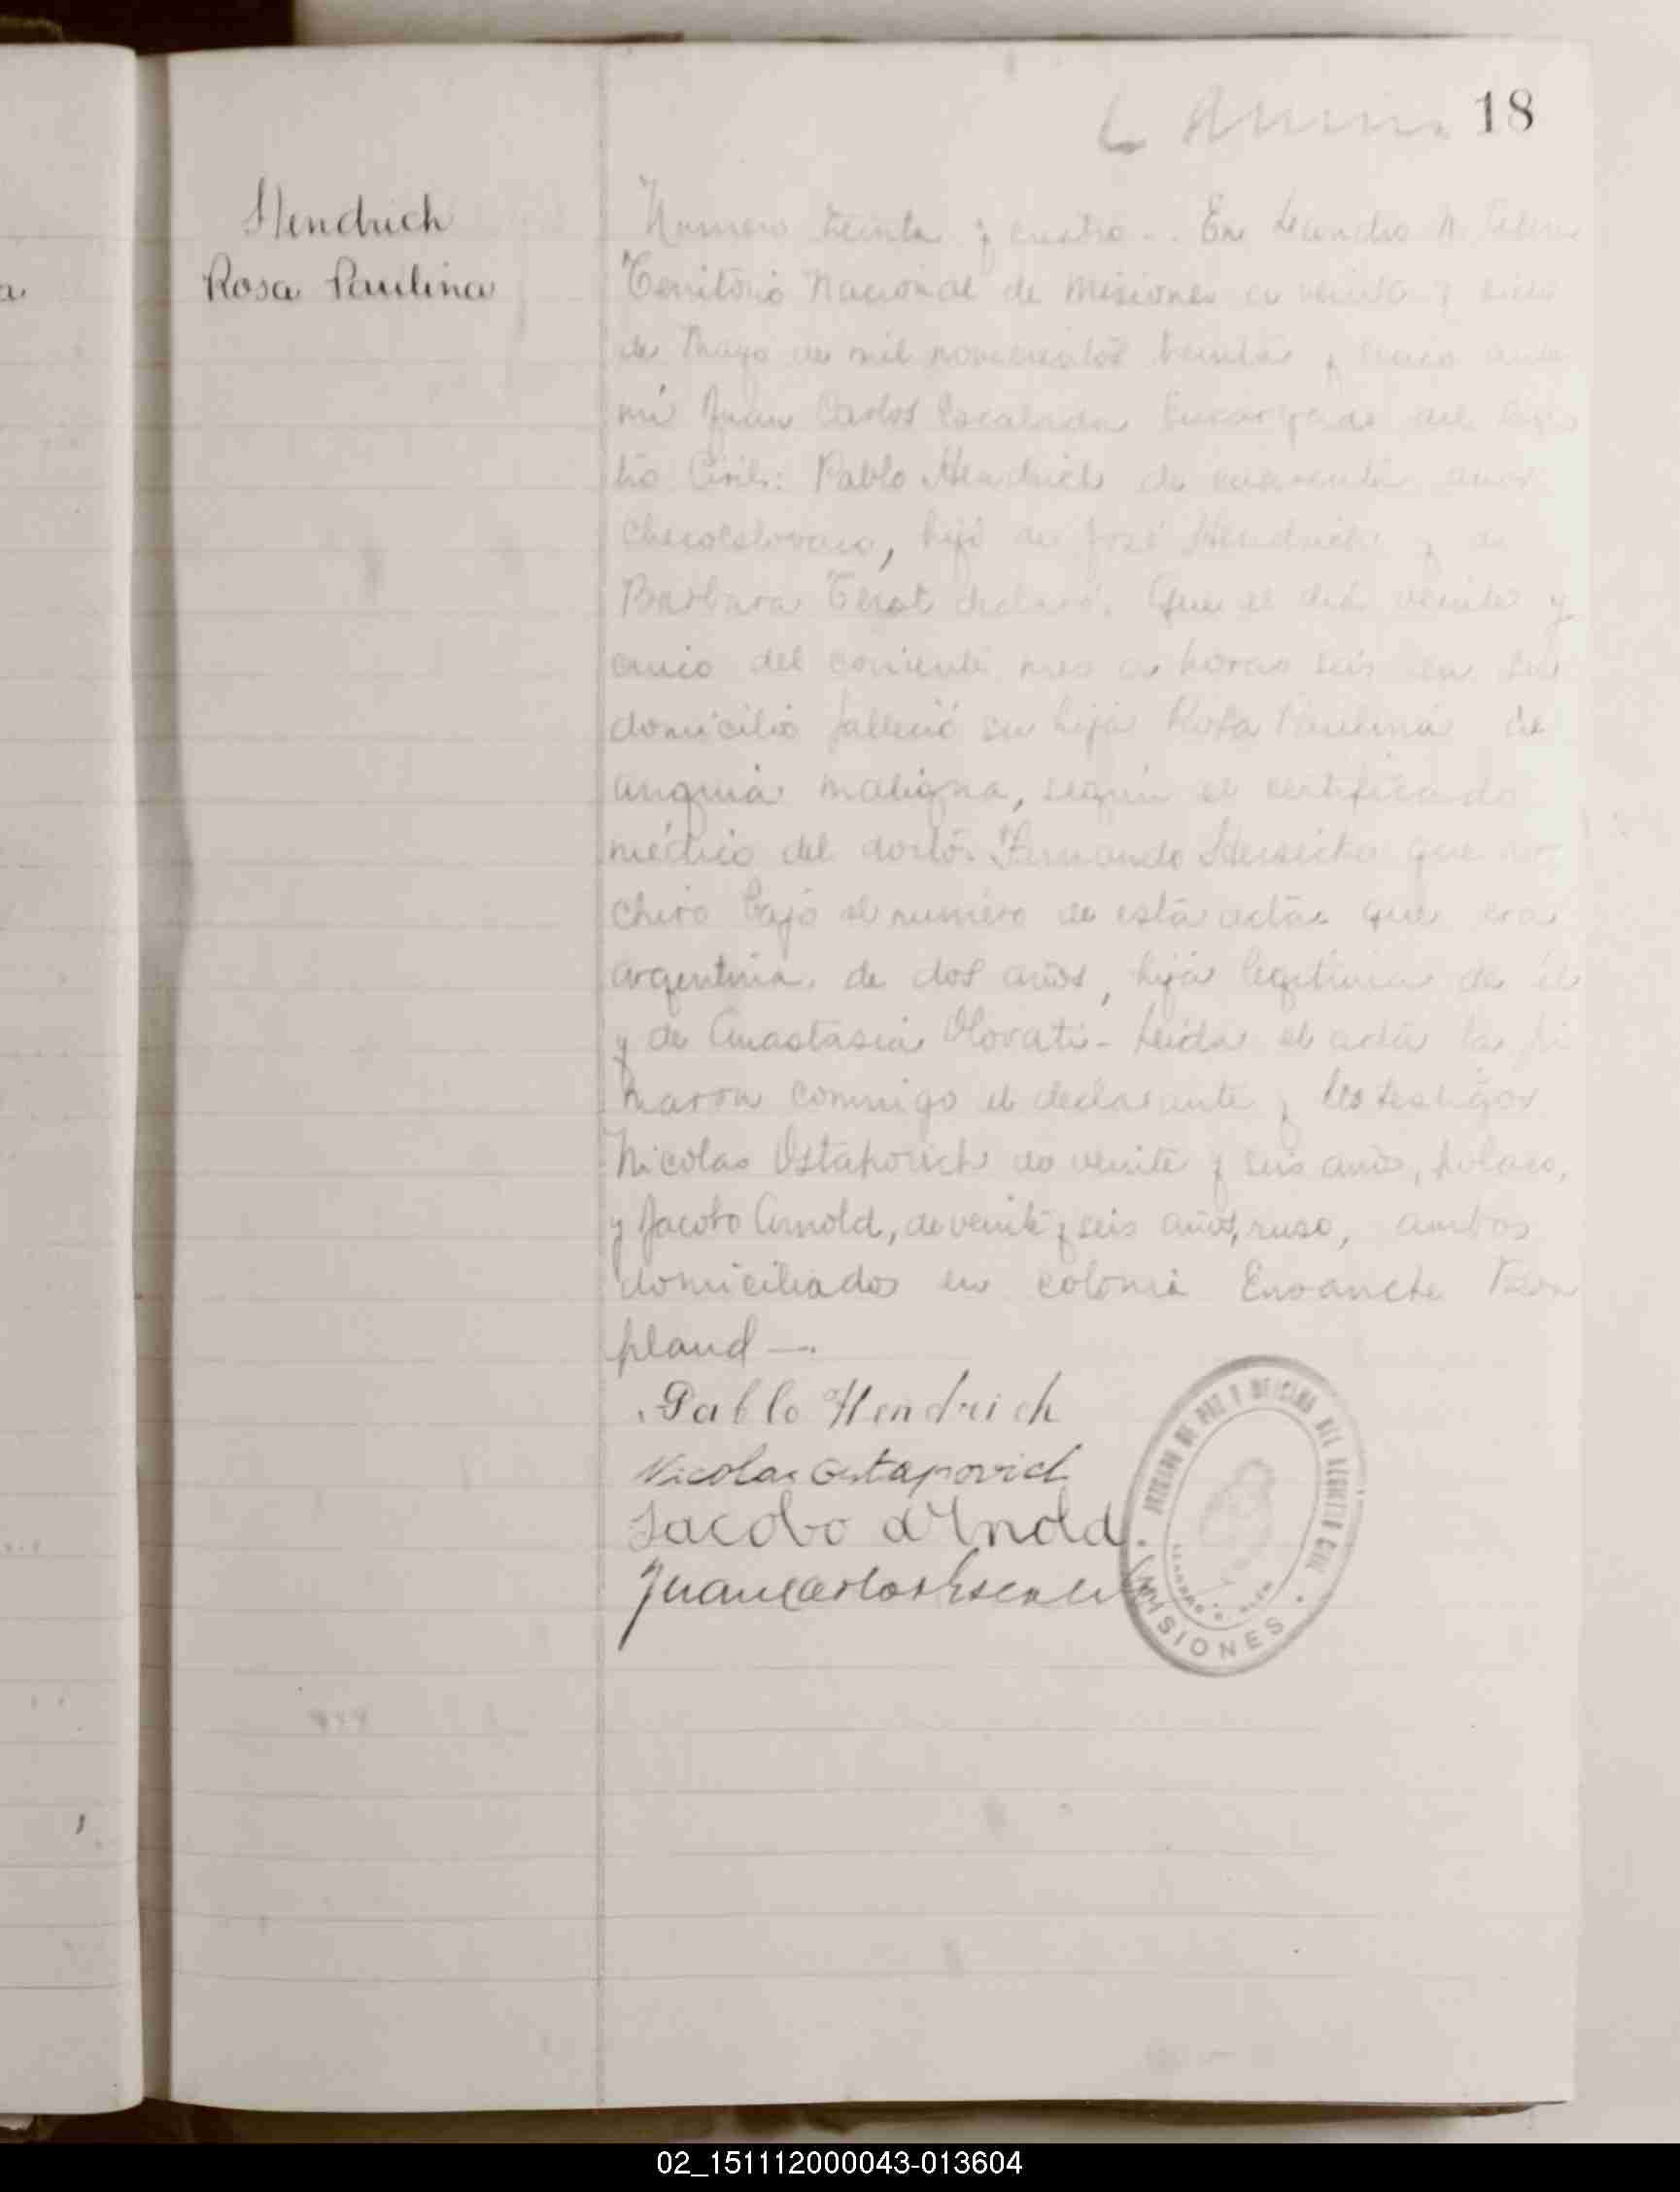 18
Hendrich
Rosa Paulina
Numero treinta y cuatro -. En Leandro N. Alem
Territorio Nacional de Misiones a veinte y siete
de Mayo de mil novecientos treinta y cinco ante
mi Juan Carlos Escalada Encargado del Regis
tro Civil: Pablo Hendrich de cuarenta años
checoeslovaco, hijo de José Hendrich y de
Barbara declaró. Que el dia veinte y
cinco del coriente mes a horas seis en su
domicilio falleció su hija Rosa Paulina de
anguia maligna, según el certificado
médico del doctor Fernando que ar
chivo bajo el numero de esta acta que era
argentina, de dos años, hija legitima de él
y de Anastasia - Leida el acta la fir
maron conmigo el declarante y los testigos
Nicolas Ostapovich de veinte y seis años, polaco,
y Jacobo Arnold, de veinte y seis años, ruso, ambos
domiciliados en colonia Ensanche
pland -.
Pablo Hendrich
Nicolas Ostapovich
Jacobo Arnold
Juan Carlos Escalada
JUZGADO DE PAZ Y OFICINA DEL REGISTRO CIVIL
LEANDRO N. ALEM
(MISIONES)
02_151112000043-013604